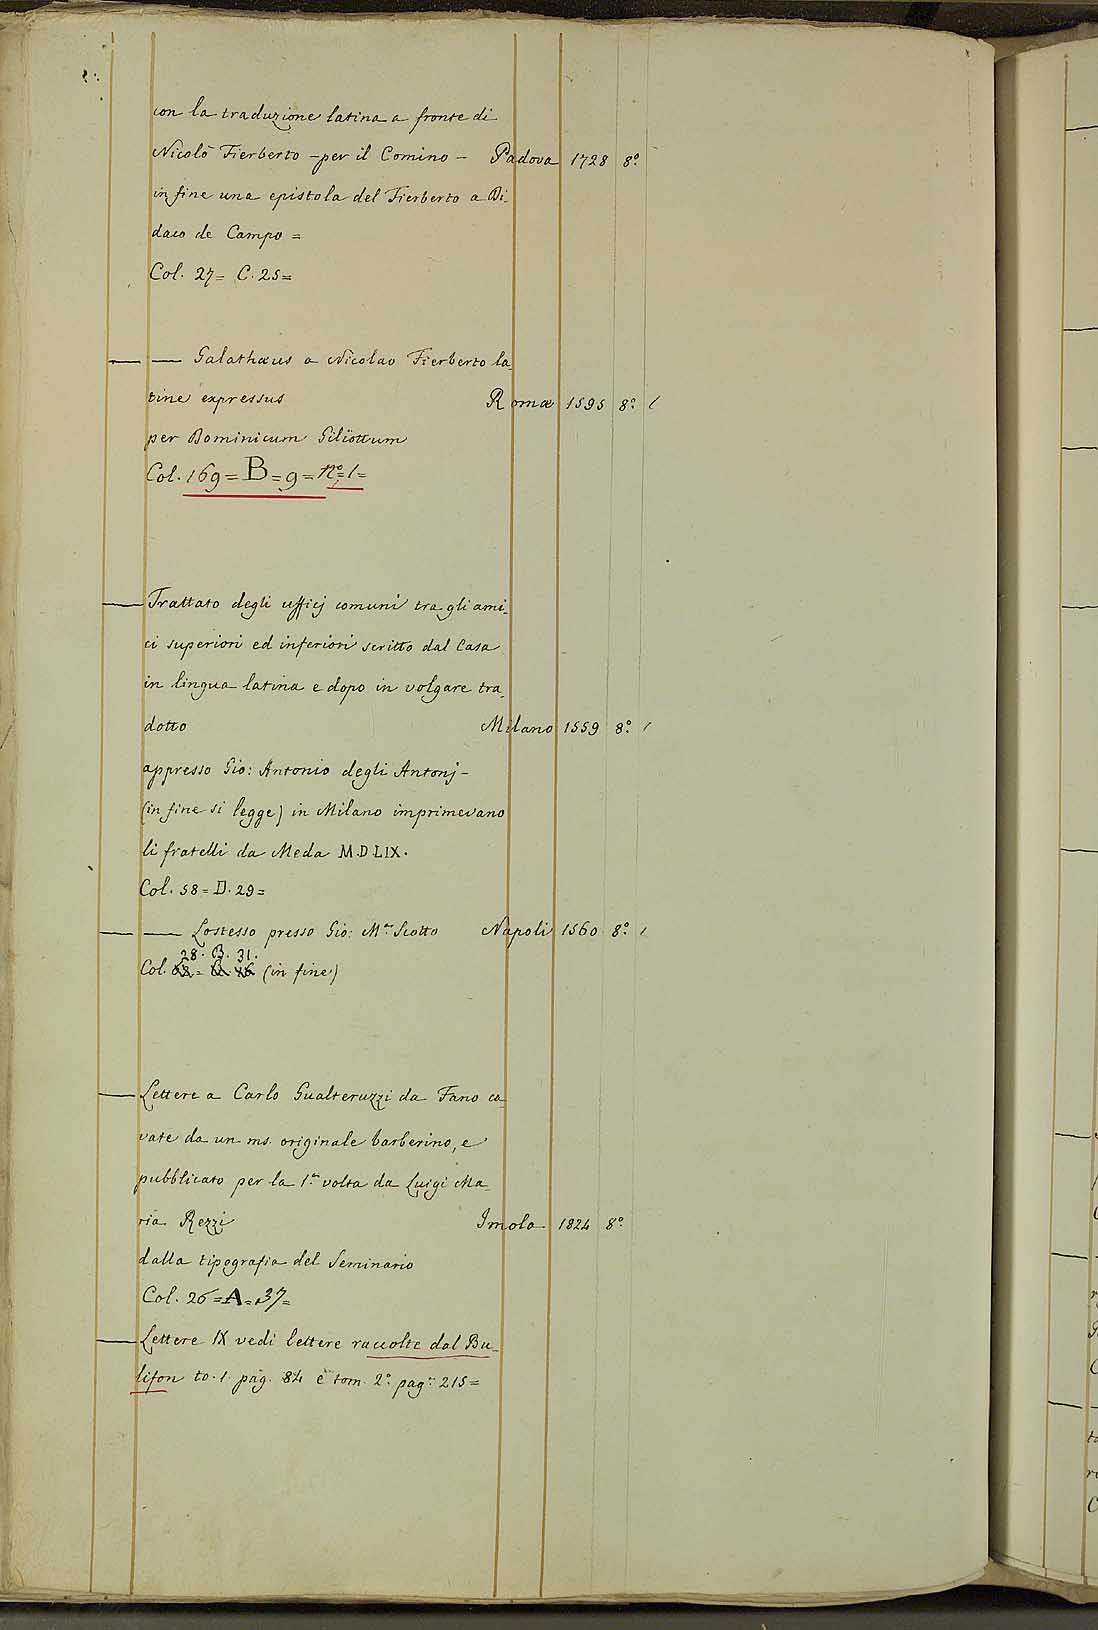 con la traduzione latina a fronte di
Nicolò Fierberto - per il Comino - Padova 1728 8.°
in fine una epistola del Fierberto a Di-
daco de Campo =
Col. 27 = C. 25 =
— — Galathæus a Nicolao Fierberto la-
tine expressus Romæ 1595 8.° /
per Dominicum Giliöttum
Col. 169 = B = 9 = n.° 1 =
— Trattato degli ufficj comuni tra gli ami-
ci superiori ed inferiori scritto dal Casa
in lingua latina e dopo in volgare tra-
dotto Milano 1559 8.° /
appresso Gio: Antonio degli Antonj -
(in fine si legge) in Milano imprimevano
li fratelli da Meda M.D.LIX.
Col. 58 = D. 29 =
— — Lostesso presso Gio: M.ᵃ Scotto Napoli 1560 8.° /
28. B. 31.
Col. (in fine)
— Lettere a Carlo Gualteruzzi da Fano ca-
vate da un ms. originale barberino, e
pubblicato per la 1.ᵃ volta da Luigi Ma-
ria Rezzi Imola 1824 8.°
dalla tipografia del Seminario
Col. 26 = A = 37 =
— Lettere IX vedi lettere raccolte dal Bu-
lifon to. 1. pag. 84 e tom. 2.° pag. 215 =